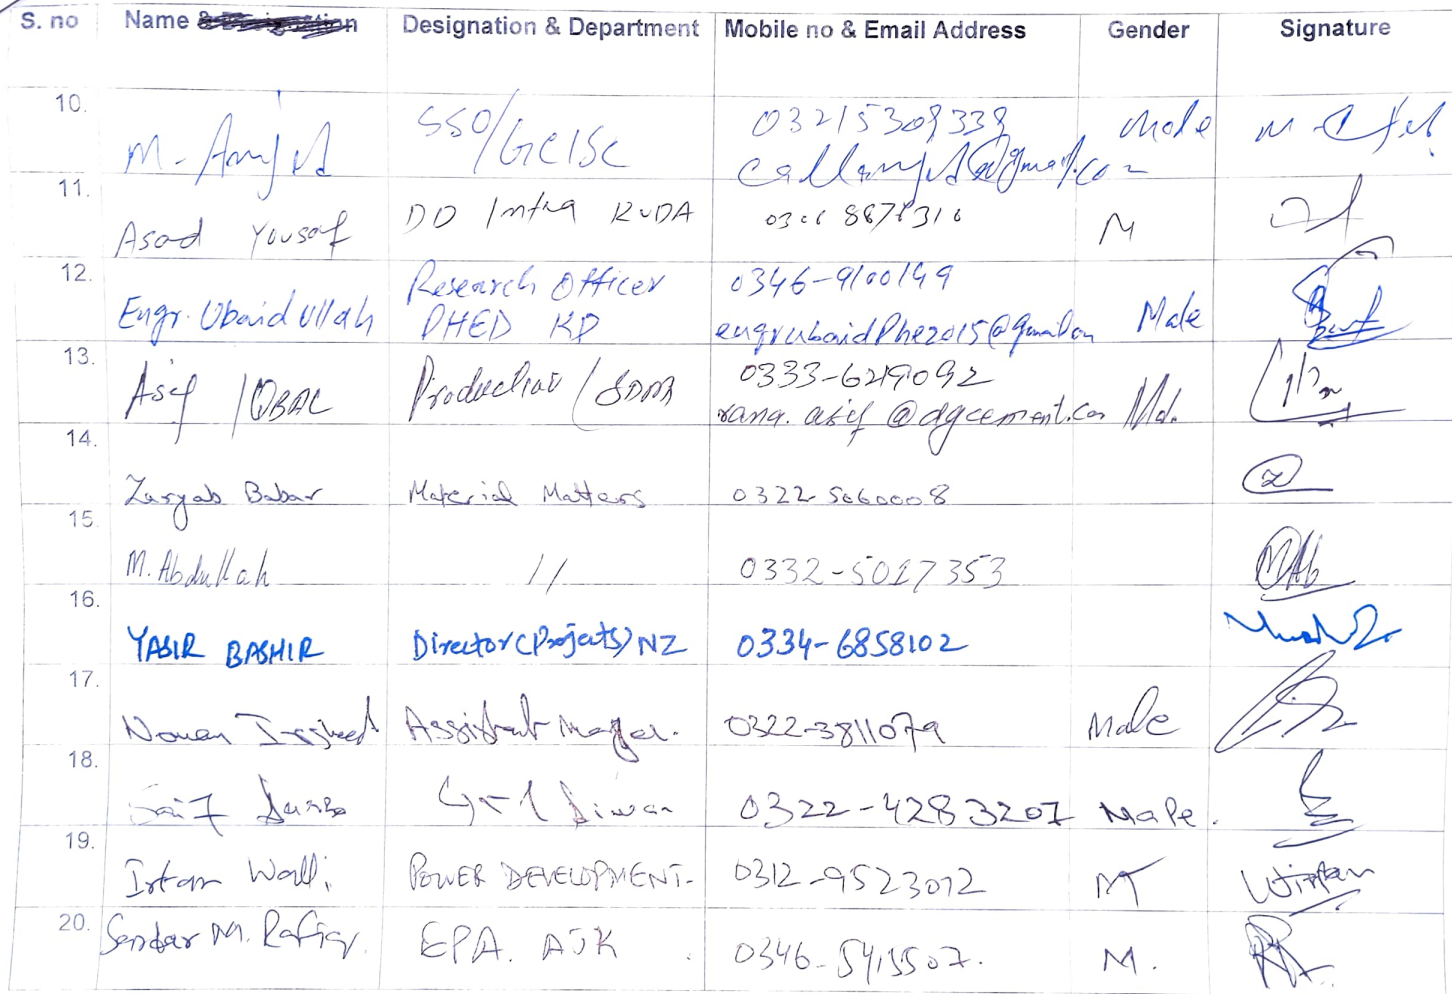 S. no Name & Designation Designation & Department Mobile no & Email Address Gender Signature
10. M. Amjad SSO/GCISC 03215309339 Male
callamjad@gmail.com
11. Asad Yousaf DD Infra RUDA M
12. Engr. Ubaid Ullah Research Officer 0346-9100149 Male
PHED KP engrubaidphe2015@gmail.com
13. Asif IQBAL Production 0333-6219092
rana.asif@dgcement.com
14. Zaryab Babar Material Matters 0322-5060008
15. M. Abdullah // 0332-5017353
16. YASIR BASHIR Director (Projects) NZ 0334-6858102
17. Assistant Manager. 0322-3811079 Male
18. Saif 0322-4283207 Male.
19. Irfan Wali POWER DEVELOPMENT. 0312-9523072 M
20. Sardar M. Rafiq. EPA. AJK 0346-5415507. M.